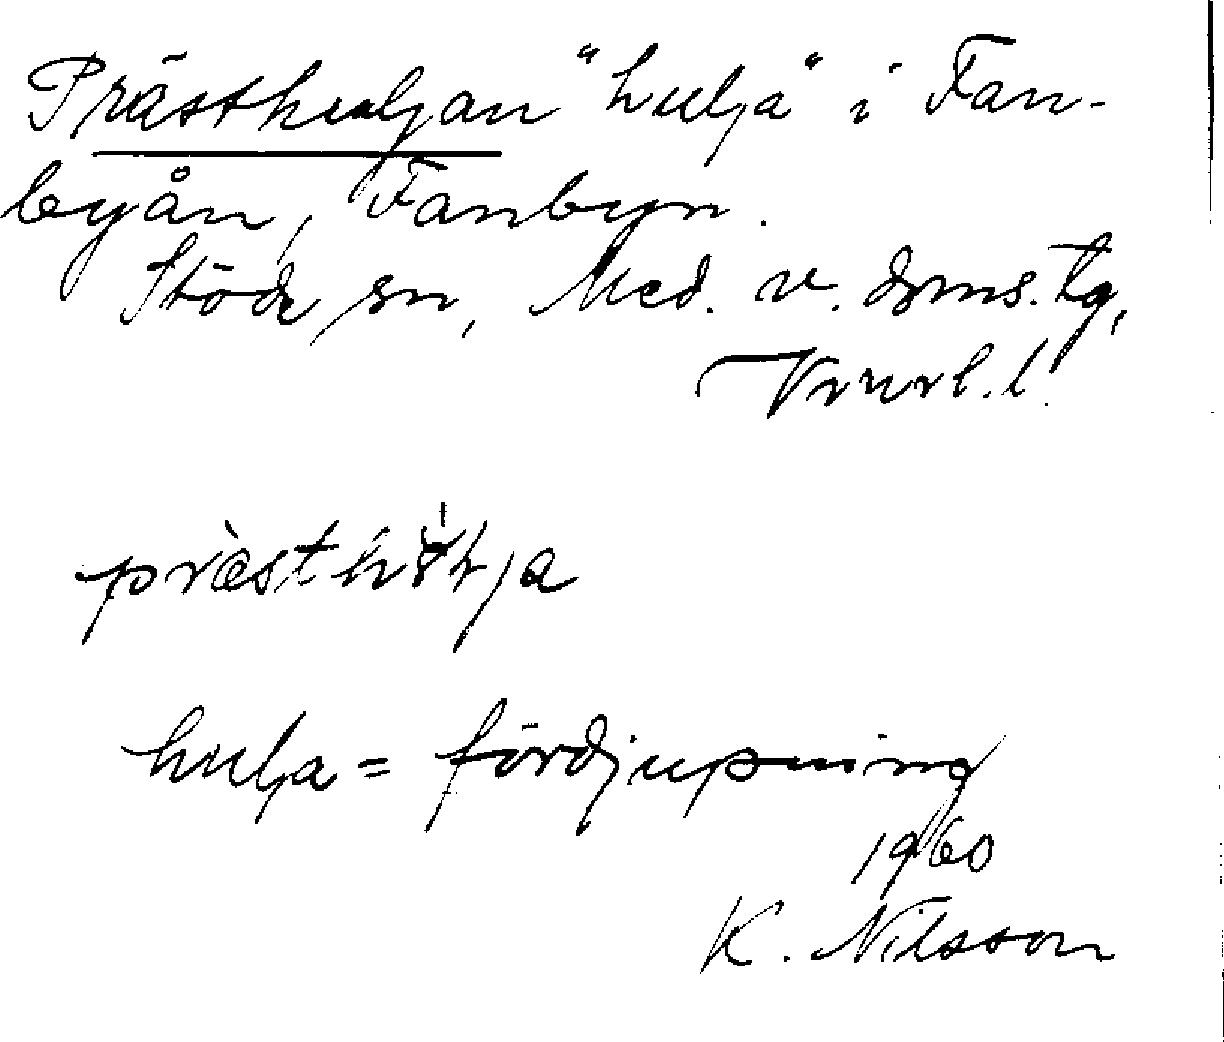 Prästhuljan "hulja" i Fan-
byån, Fanbyn.
Stöde sn, Med. v. doms. tg,
Vnorl. l.
hulja = fördjupning
1960
K. Nilsson